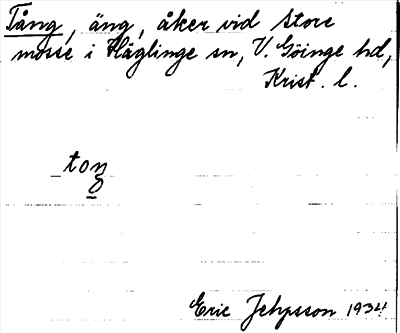 Tång, äng, åker vid Store
mosse i Häglinge sn, V. Göinge hd,
Krist. l.
toŋ
Eric Jehpsson 1934